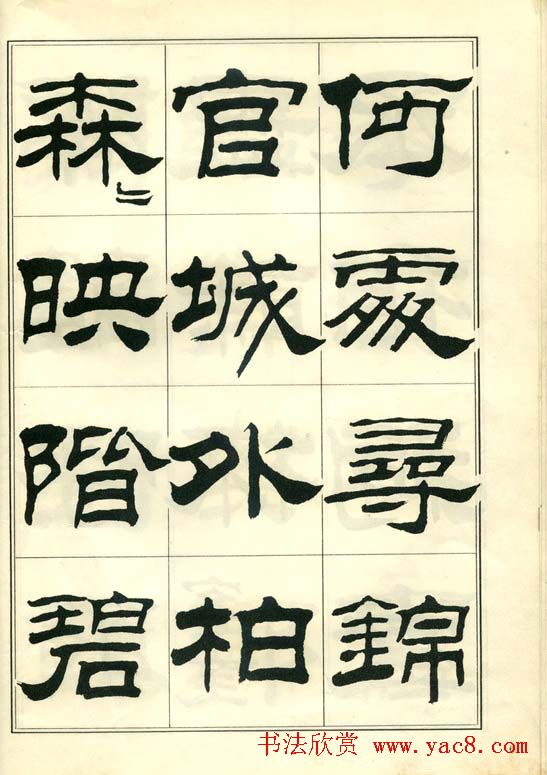 何處尋錦
官城外柏
森〻映階碧
书法欣赏 www.yac8.com